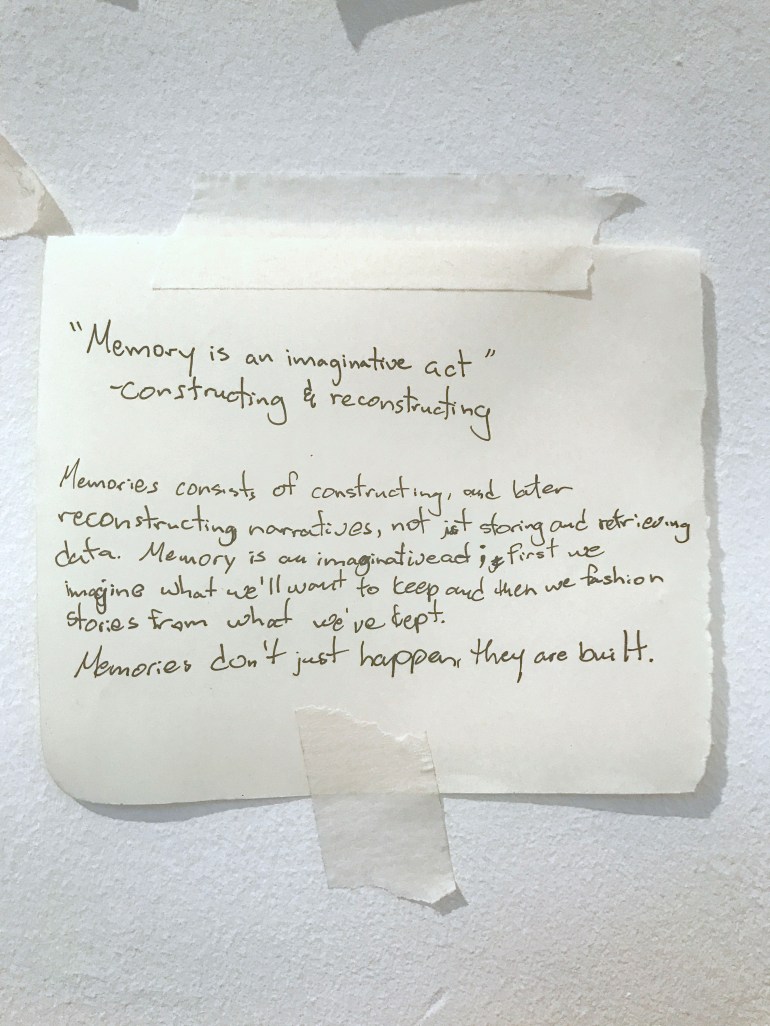 "Memory is an imaginative act"
-constructing & reconstructing
Memories consists of constructing, and later
reconstructing narratives, not just storing and retrieving
data. Memory is an imaginative act; first we
imagine what we'll want to keep and then we fashion
stories from what we've kept.
Memories don't just happen, they are built.